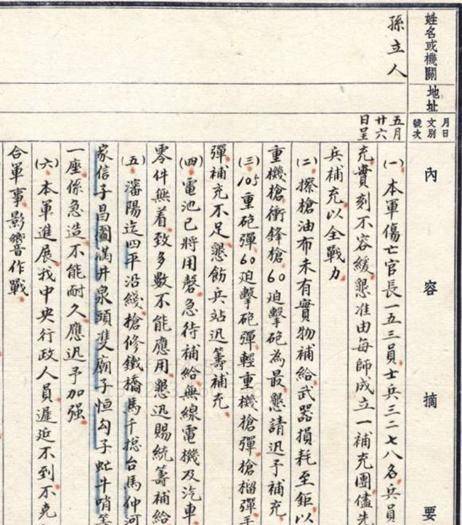 姓名或機關
地址
月日
文別
號次
內容摘要
孫立人
五月
廿六
日呈
(一)本軍傷亡官長一五三員士兵三二七八名兵員
充實刻不容緩懇准由每師成立一補充團儘先
兵補充以全戰力
(二)擦槍油布未有實物補給武器損耗至鉅以
重機槍衝鋒槍60迫擊砲為最懇請迅予補充
(三)105重砲彈60迫擊砲彈輕重機槍彈槍榴彈手
彈補充不足懇飭兵站迅籌補充
(四)電池已將用罄急待補給無線電機及汽車
零件無着致多數不能應用懇迅賜統籌補給
(五)瀋陽迄四平沿綫搶修鐵橋馬千總台馬仲河
家信子昌圖滿井泉頭雙廟子恒勾子虻牛哨等
一座係急造不能耐久應迅予加强
(六)本軍進展找中央行政人員遲延不到不克
合軍事影響作戰